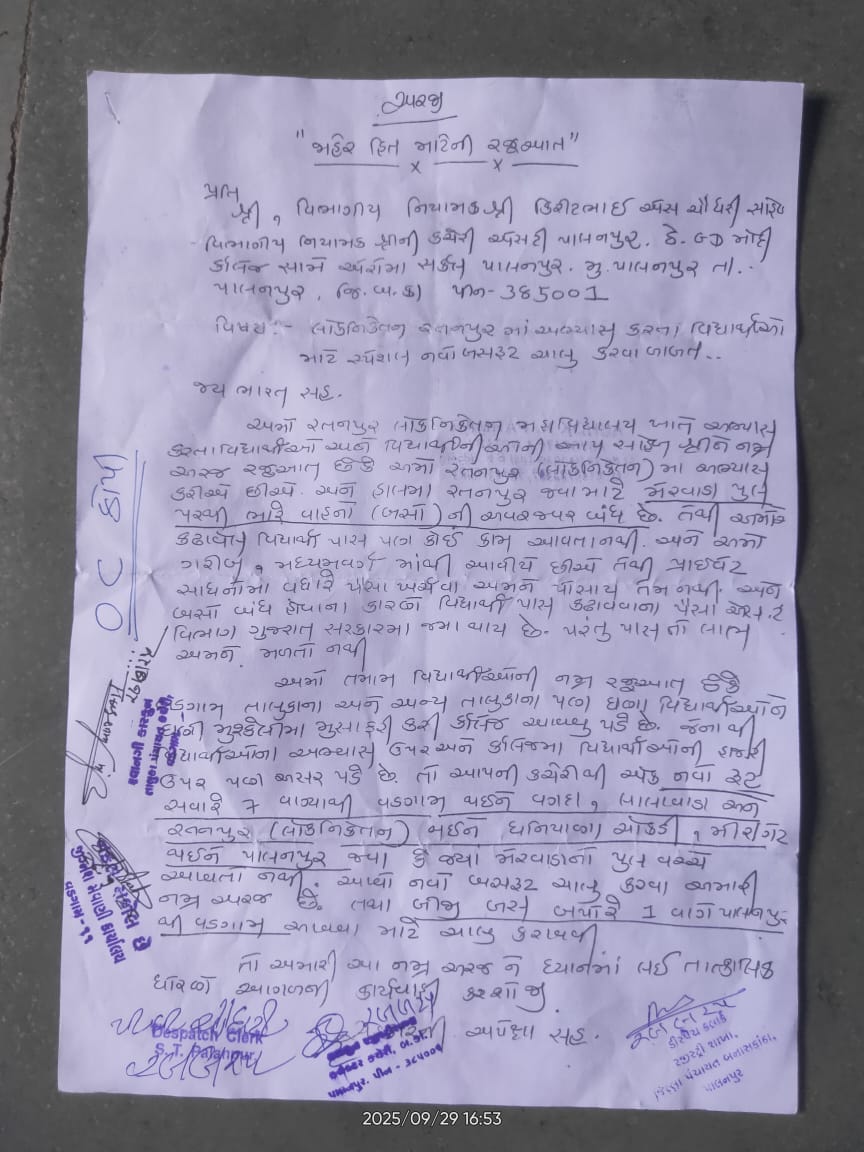 અરજી
"જાહેર હિત માટેની રજુઆત"
પ્રતિ
શ્રી, વિભાગીય નિયામક શ્રી કિરીટભાઈ એસ ચૌધરી સાહેબ
વિભાગીય નિયામક શ્રીની કચેરી એસટી પાલનપુર. ઠે. GD મોદી
કોલેજ સામે એરોમા સર્કલ પાલનપુર. મુ. પાલનપુર તા..
પાલનપુર, જિ. બ.કાં પીન-385001
વિષય:- લોકનિકેતન રતનપુર માં અભ્યાસ કરતા વિદ્યાર્થીઓ
માટે સ્પેશલ નવો બસરૂટ ચાલુ કરવા બાબત..
જય ભારત સહ.
અમો રતનપુર લોકનિકેતન મહાવિદ્યાલય ખાતે અભ્યાસ
કરતા વિદ્યાર્થીઓ અને વિદ્યાર્થીનીઓની આપ સાહેબ શ્રીને નમ્ર
અરજ રજુઆત છેકે અમો રતનપુર (લોકનિકેતન) મા અભ્યાસ
કરીએ છીએ. અને હાલમા રતનપુર જવા માટે મેરવાડા પુલ
પરથી ભારે વાહનો (બસો) ની અવરજવર બંધ છે. તેથી અમોએ
કઢાવેલ વિદ્યાર્થી પાસ પણ કોઈ કામ આવતા નથી. અને અમો
ગરીબ, મધ્યમવર્ગ માંથી આવીયે છીએ તેથી પ્રાઈવેટ
સાધનોમા વધારે પૈસા ખર્ચવા અમને પોસાય તેમ નથી. અને
બસો બંધ હોવાના કારણે વિદ્યાર્થી પાસ કઢાવવાના પૈસા એસ.ટ
વિભાગ ગુજરાત સરકારમા જમા થાય છે. પરંતુ પાસ નો લાભ
અમને મળતો નથી
અમો તમામ વિદ્યાર્થીઓની નમ્ર રજુઆત છેકે
વડગામ તાલુકાના અને અન્ય તાલુકાના પણ ઘણા વિદ્યાર્થીઓને
ઘણી મુશ્કેલીમા મુસાફરી કરી કોલેજ આવવુ પડે છે. જેનાથી
વિદ્યાર્થીઓના અભ્યાસ ઉપર અને કોલેજમા વિદ્યાર્થીઓની હાજરી
ઉપર પણ અસર પડે છે. તો આપની કચેરીથી એક નવો રૂટ
સવારે 7 વાગ્યાથી વડગામ થઈને વગદા, લાલાવાડા અને
રતનપુર (લોકનિકેતન) થઈને ધનિયાણા ચોકડી, મીરાંગેટ
થઈને પાલનપુર જવા કે જ્યાં મેરવાડાનો પુલ વચ્ચે
આવતો નથી. આવો નવો બસરૂટ ચાલુ કરવા અમારી
નમ્ર અરજ છે. તથા બીજી બસ બપોરે 1 વાગે પાલનપુર
થી વડગામ આવવા માટે ચાલુ કરાવવી
તો અમારી આ નમ્ર અરજ ને ધ્યાનમાં લઈ તાત્કાલિક
ધોરણે આગળની કાર્યવાહી કરશોજી.
અપેક્ષા સહ.
OC કોપી
જીગ્નેશ મેવાણી કાર્યાલય
વડગામ-૧૧
Despatch Clerk
S. T. Palanpur
કલેક્ટર કચેરી, બ.કાં.
પાલનપુર. પીન - ૩૮૫૦૦૧
રજીસ્ટ્રી શાખા,
જિલ્લા પંચાયત બનાસકાંઠા,
પાલનપુર
2025/09/29 16:53